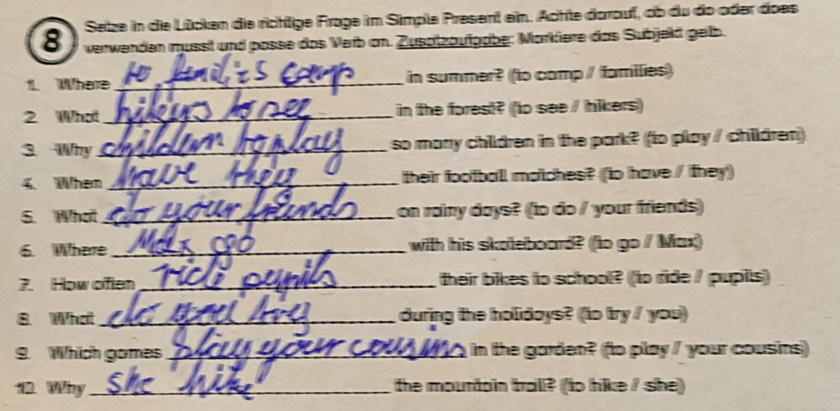 8 Setze in die Lücken die richtige Frage im Simple Present ein. Achte darauf, ob du do oder does
verwenden musst und passe das Verb an. Zusatzaufgabe: Markiere das Subjekt gelb.
1. Where to families camp in summer? (to camp / families)
2. What hikers to see in the forest? (to see / hikers)
3. Why children to play so many children in the park? (to play / children)
4. When have they their football matches? (to have / they)
5. What do your friends on rainy days? (to do / your friends)
6. Where Max go with his skateboard? (to go / Max)
7. How often ride pupils their bikes to school? (to ride / pupils)
8. What do you try during the holidays? (to try / you)
9. Which games play your cousins in the garden? (to play / your cousins)
10. Why she hike the mountain trail? (to hike / she)